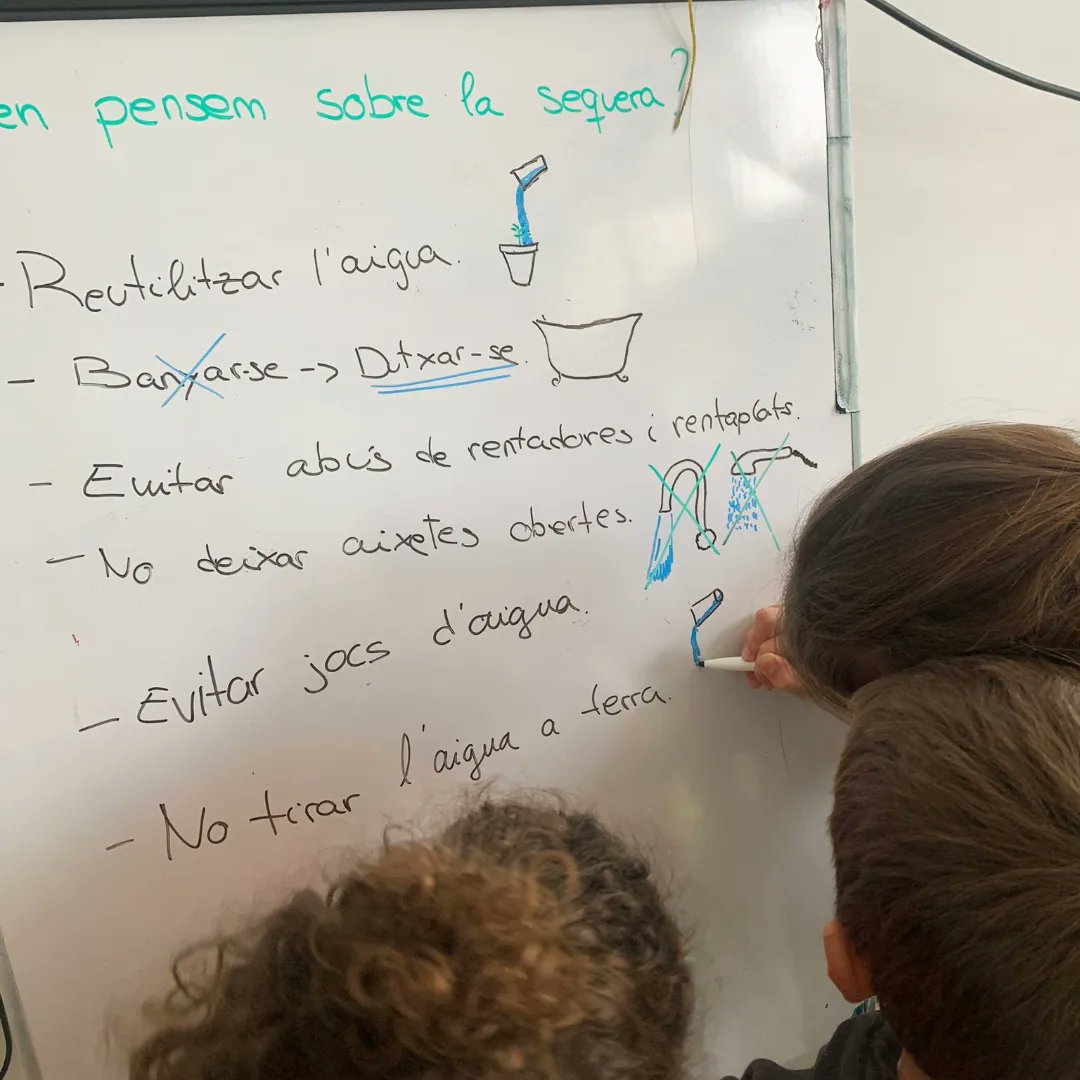 en pensem sobre la sequera?
- Reutilitzar l'aigua.
- Banyar-se -> Dutxar-se.
- Evitar abús de rentadores i rentaplats.
- No deixar aixetes obertes.
- Evitar jocs d'aigua.
- No tirar l'aigua a terra.